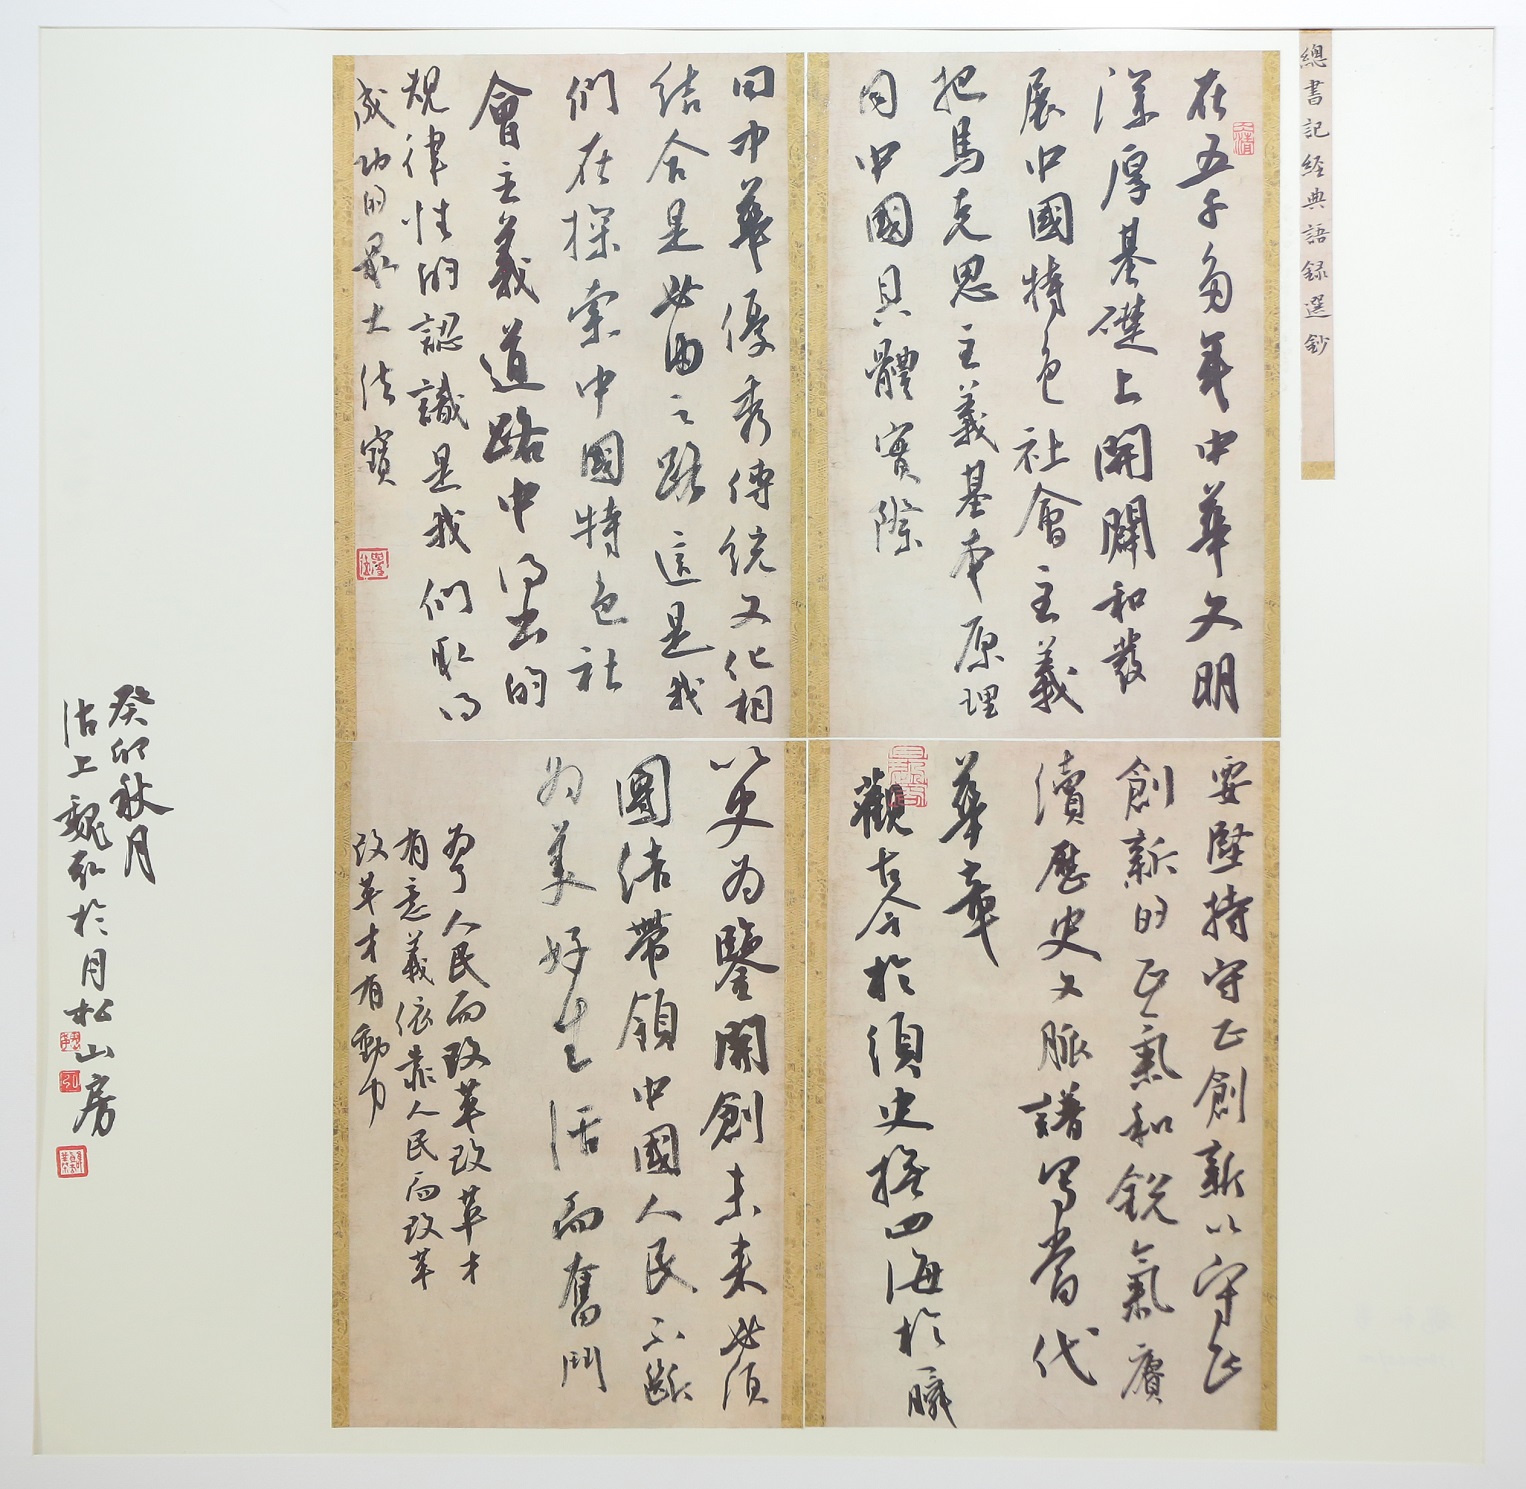 總書記經典語録選鈔
在五千多年中華文明
深厚基礎上開闢和發
展中國特色社會主義
把馬克思主義基本原理
同中國具體實際
同中華優秀傳統文化相
結合是必由之路這是我
們在探索中國特色社
會主義道路中得出的
規律性的認識是我們取得
成功的最大法寶
要堅持守正創新以守正
創新的正氣和銳氣賡
續歷史文脈譜寫當代
華章
觀古今於須臾撫四海於瞬
以史為鑒開創未來必須
團結帶領中國人民不斷
為美好生活而奮鬥
為了人民而改革改革才
有意義依靠人民而改革
改革才有動力
癸卯秋月
沽上魏弘於月松山房